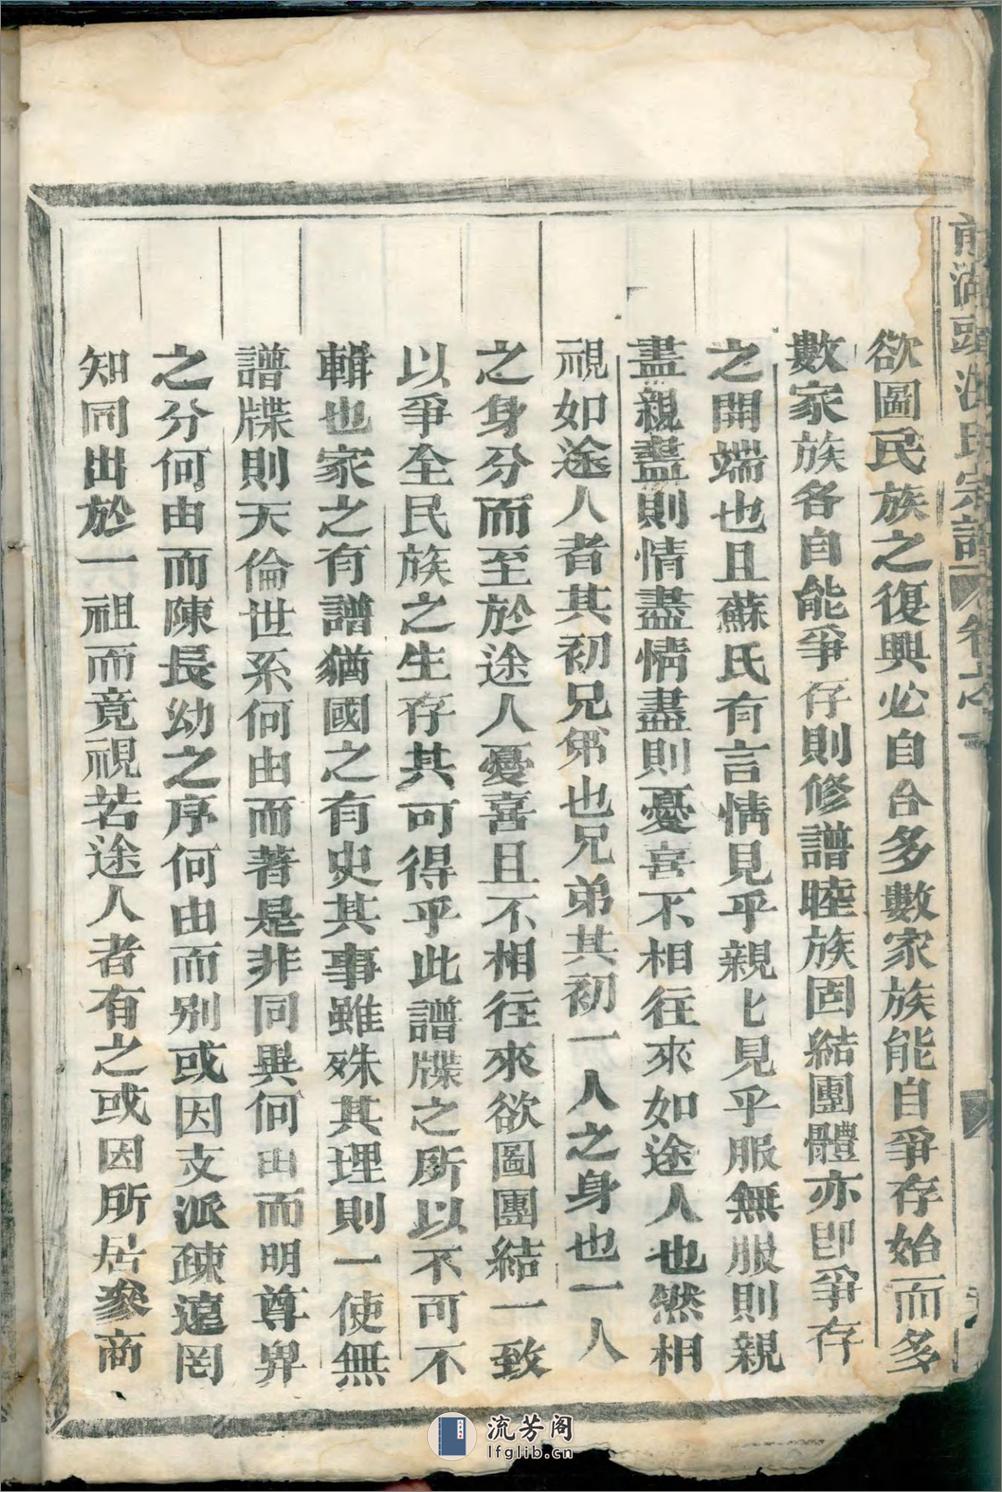 欲圖民族之復興必自合多數家族能自爭存始而多
數家族各自能爭存則修譜睦族固結團體亦卽爭存
之開端也且蘇氏有言情見乎親匕見乎服無服則親
盡親盡則情盡情盡則憂喜不相往來如途人也然相
視如途人者其初兄弟也兄弟其初一人之身也一人
之身分而至於途人憂喜且不相往來欲圖團結一致
以爭全民族之生存其可得乎此譜牒之所以不可不
輯也家之有譜猶國之有史其事雖殊其理則一使無
譜牒則天倫世系何由而著是非同異何由而明尊卑
之分何由而陳長幼之序何由而別或因支派疎遠罔
知同出於一祖而竟視若途人者有之或因所居參商
湖頭 氏宗譜 卷之一
流芳阁
lfglib.cn